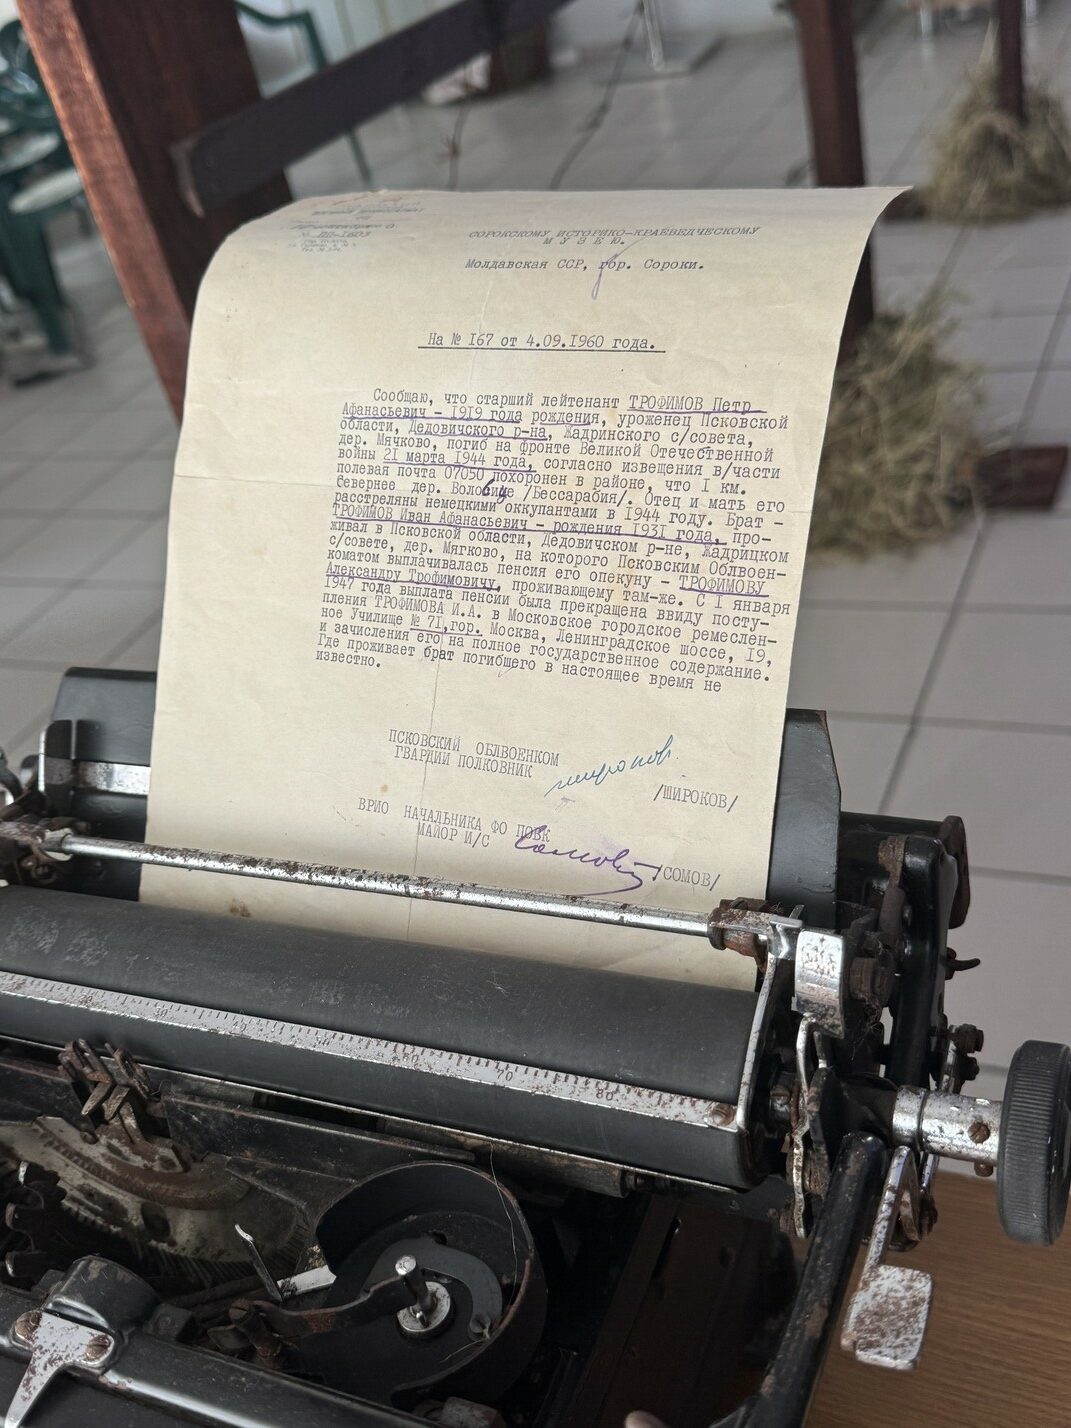 СОРОКСКОМУ ИСТОРИКО-КРАЕВЕДЧЕСКОМУ
МУЗЕЮ.
Молдавская ССР, гор. Сороки.
На № I67 от 4.09.I960 года.
Сообщаю, что старший лейтенант ТРОФИМОВ Петр
Афанасьевич – I9I9 года рождения, уроженец Псковской
области, Дедовичского р-на, Жадринского с/совета,
дер. Мячково, погиб на фронте Великой Отечественной
войны 2I марта I944 года, согласно извещения в/части
полевая почта 07050 похоронен в районе, что I км.
Севернее дер. /Бессарабия/. Отец и мать его
расстреляны немецкими оккупантами в I944 году. Брат –
ТРОФИМОВ Иван Афанасьевич – рождения I93I года, про-
живал в Псковской области, Дедовичском р-не, Жадрицком
с/совете, дер. Мягково, на которого Псковским Облвоен-
коматом выплачивалась пенсия его опекуну – ТРОФИМОВУ
Александру Трофимовичу, проживающему там-же. С I января
I947 года выплата пенсии была прекращена ввиду посту-
пления ТРОФИМОВА И.А. в Московское городское ремеслен-
ное Училище № 7I,гор. Москва, Ленинградское шоссе, I9,
и зачисления его на полное государственное содержание.
Где проживает брат погибшего в настоящее время не
известно.
ПСКОВСКИЙ ОБЛВОЕНКОМ
ГВАРДИИ ПОЛКОВНИК
широков
/ШИРОКОВ/
ВРИО НАЧАЛЬНИКА ФО ПОВК
МАЙОР И/С
Сомов
/СОМОВ/
40 50 60 70 80